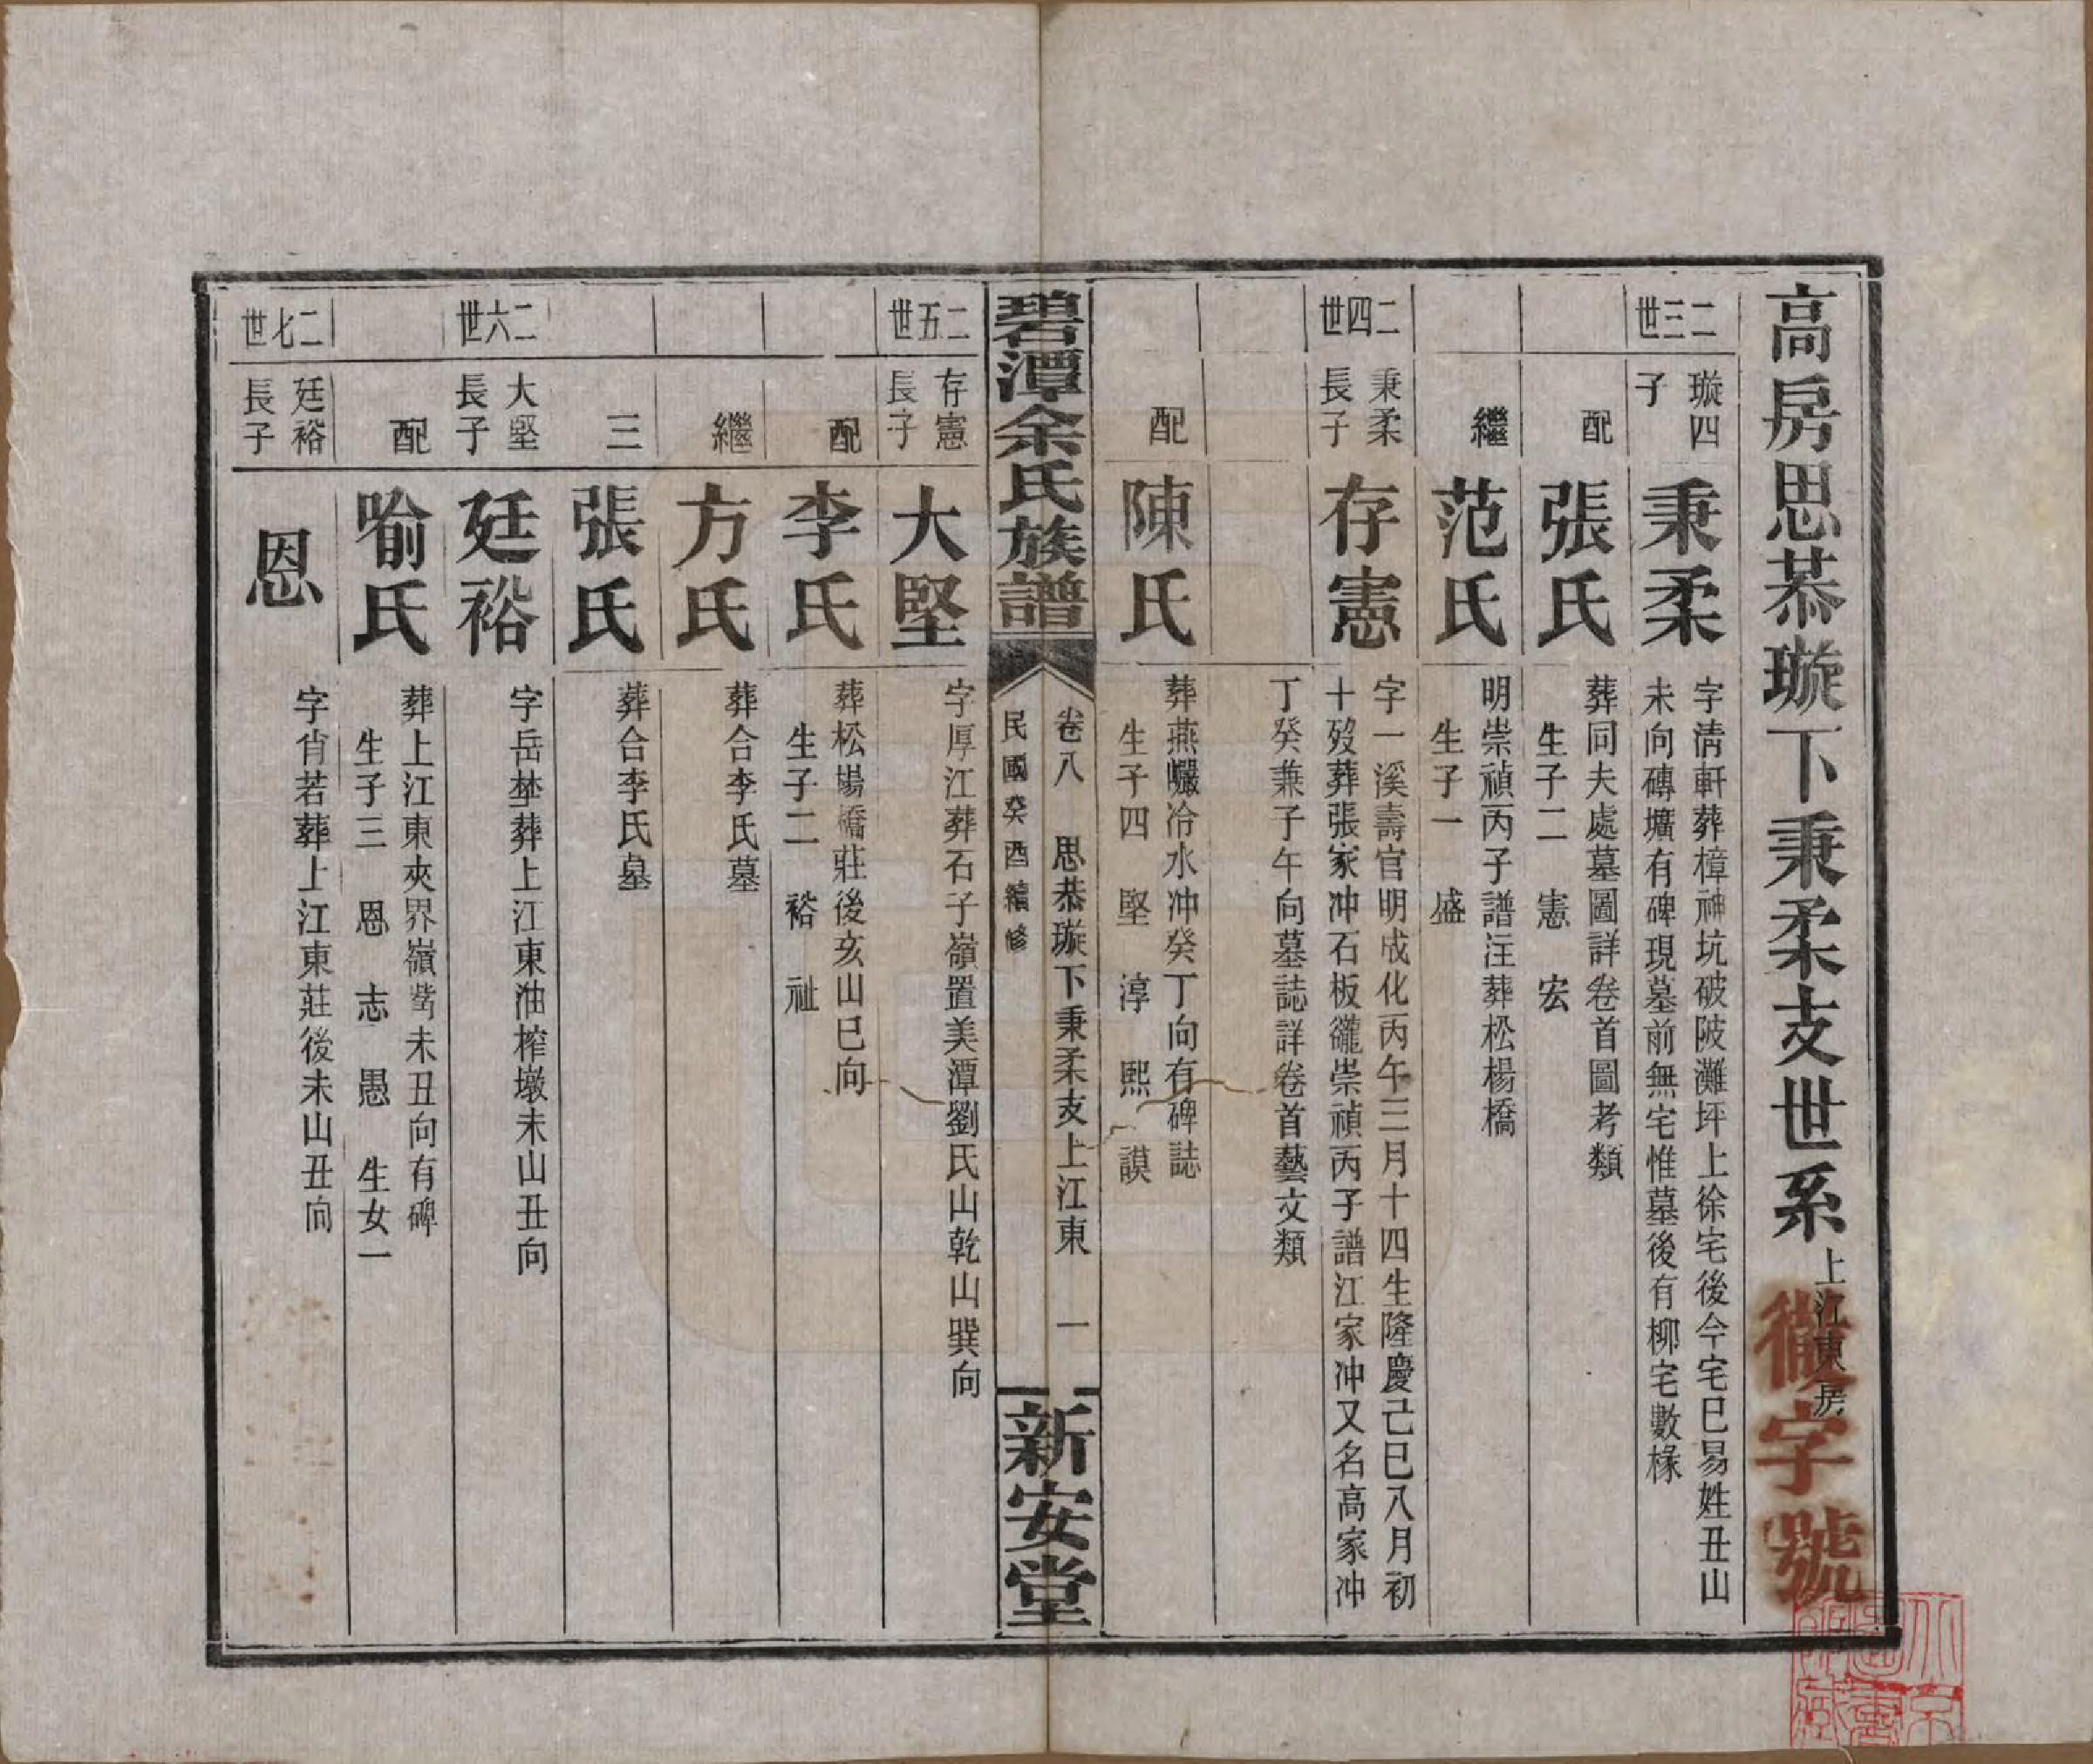 高房思恭璇下秉柔支世系 上江東房
徽字號
二三世
璇四
子
秉柔
字清軒葬樟神坑破陂灘坪上徐宅後今宅已易姓丑山
未向磚壙有碑現墓前無宅惟墓後有柳宅數椽
配
張氏
葬同夫處墓圖詳卷首圖考類
生子二 憲 宏
繼
范氏
明崇禎丙子譜注葬松楊橋
生子一 盛
二四世
秉柔
長子
存憲
字一溪壽官明成化丙午三月十四生隆慶己巳八月初
十歿葬張家冲石板礲崇禎丙子譜江家冲又名高家冲
丁癸兼子午向墓誌詳卷首藝文類
配
陳氏
葬燕巘冷水冲癸丁向有碑誌
生子四 堅 淳 熙 謨
碧潭余氏族譜
卷八 思恭璇下秉柔支上江東 一
民國癸酉續修
新安堂
二五世
存憲
長子
大堅
字厚江葬石子嶺置美潭劉氏山乾山巽向
配
李氏
葬松楊橋莊後亥山巳向
生子二 裕 祉
繼
方氏
葬合李氏墓
三
張氏
葬合李氏墓
二六世
大堅
長子
廷裕
字岳埜葬上江東油榨墩未山丑向
配
喻氏
葬上江東夾界嶺嵤未丑向有碑
生子三 恩 志 愚 生女一
二七世
廷裕
長子
恩
字肖若葬上江東莊後未山丑向